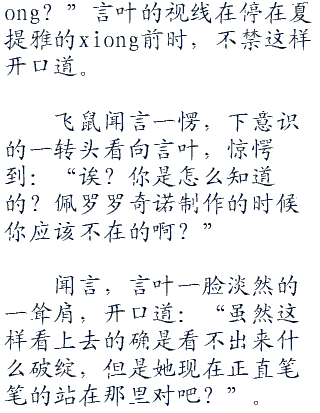 ong？”言叶的视线在停在夏
提雅的xiong前时，不禁这样
开口道。
飞鼠闻言一愣，下意识
的一转头看向言叶，惊愕
到：“诶？你是怎么知道
的？佩罗罗奇诺制作的时候
你应该不在的啊？”
闻言，言叶一脸淡然的
一耸肩，开口道：“虽然这
样看上去的确是看不出来什
么破绽，但是她现在正直笔
笔的站在那里对吧？”。